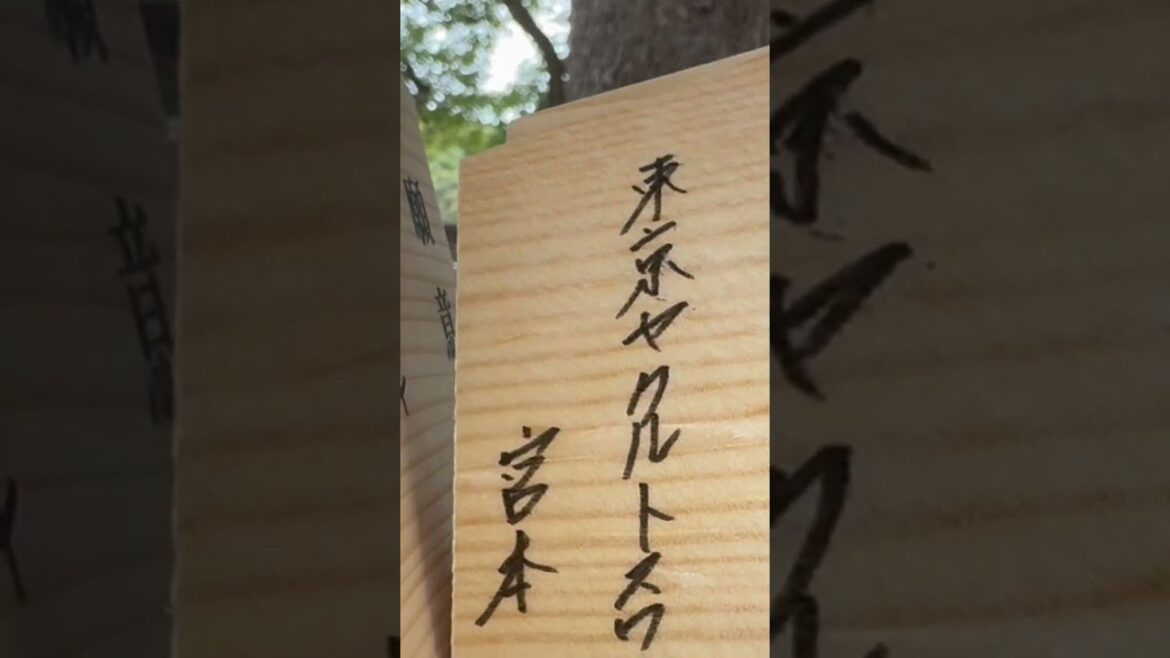 東京ヤクルトスワ
宮本
願